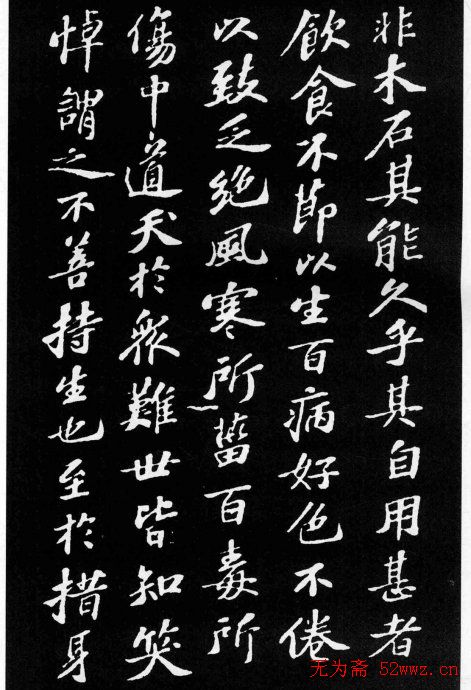 非木石其能久乎其自用甚者
飲食不節以生百病好色不倦
以致乏絶風寒所菑百毒所
傷中道夭於衆難世皆知笑
悼謂之不善持生也至於措身
无为斋 52wwz.cn